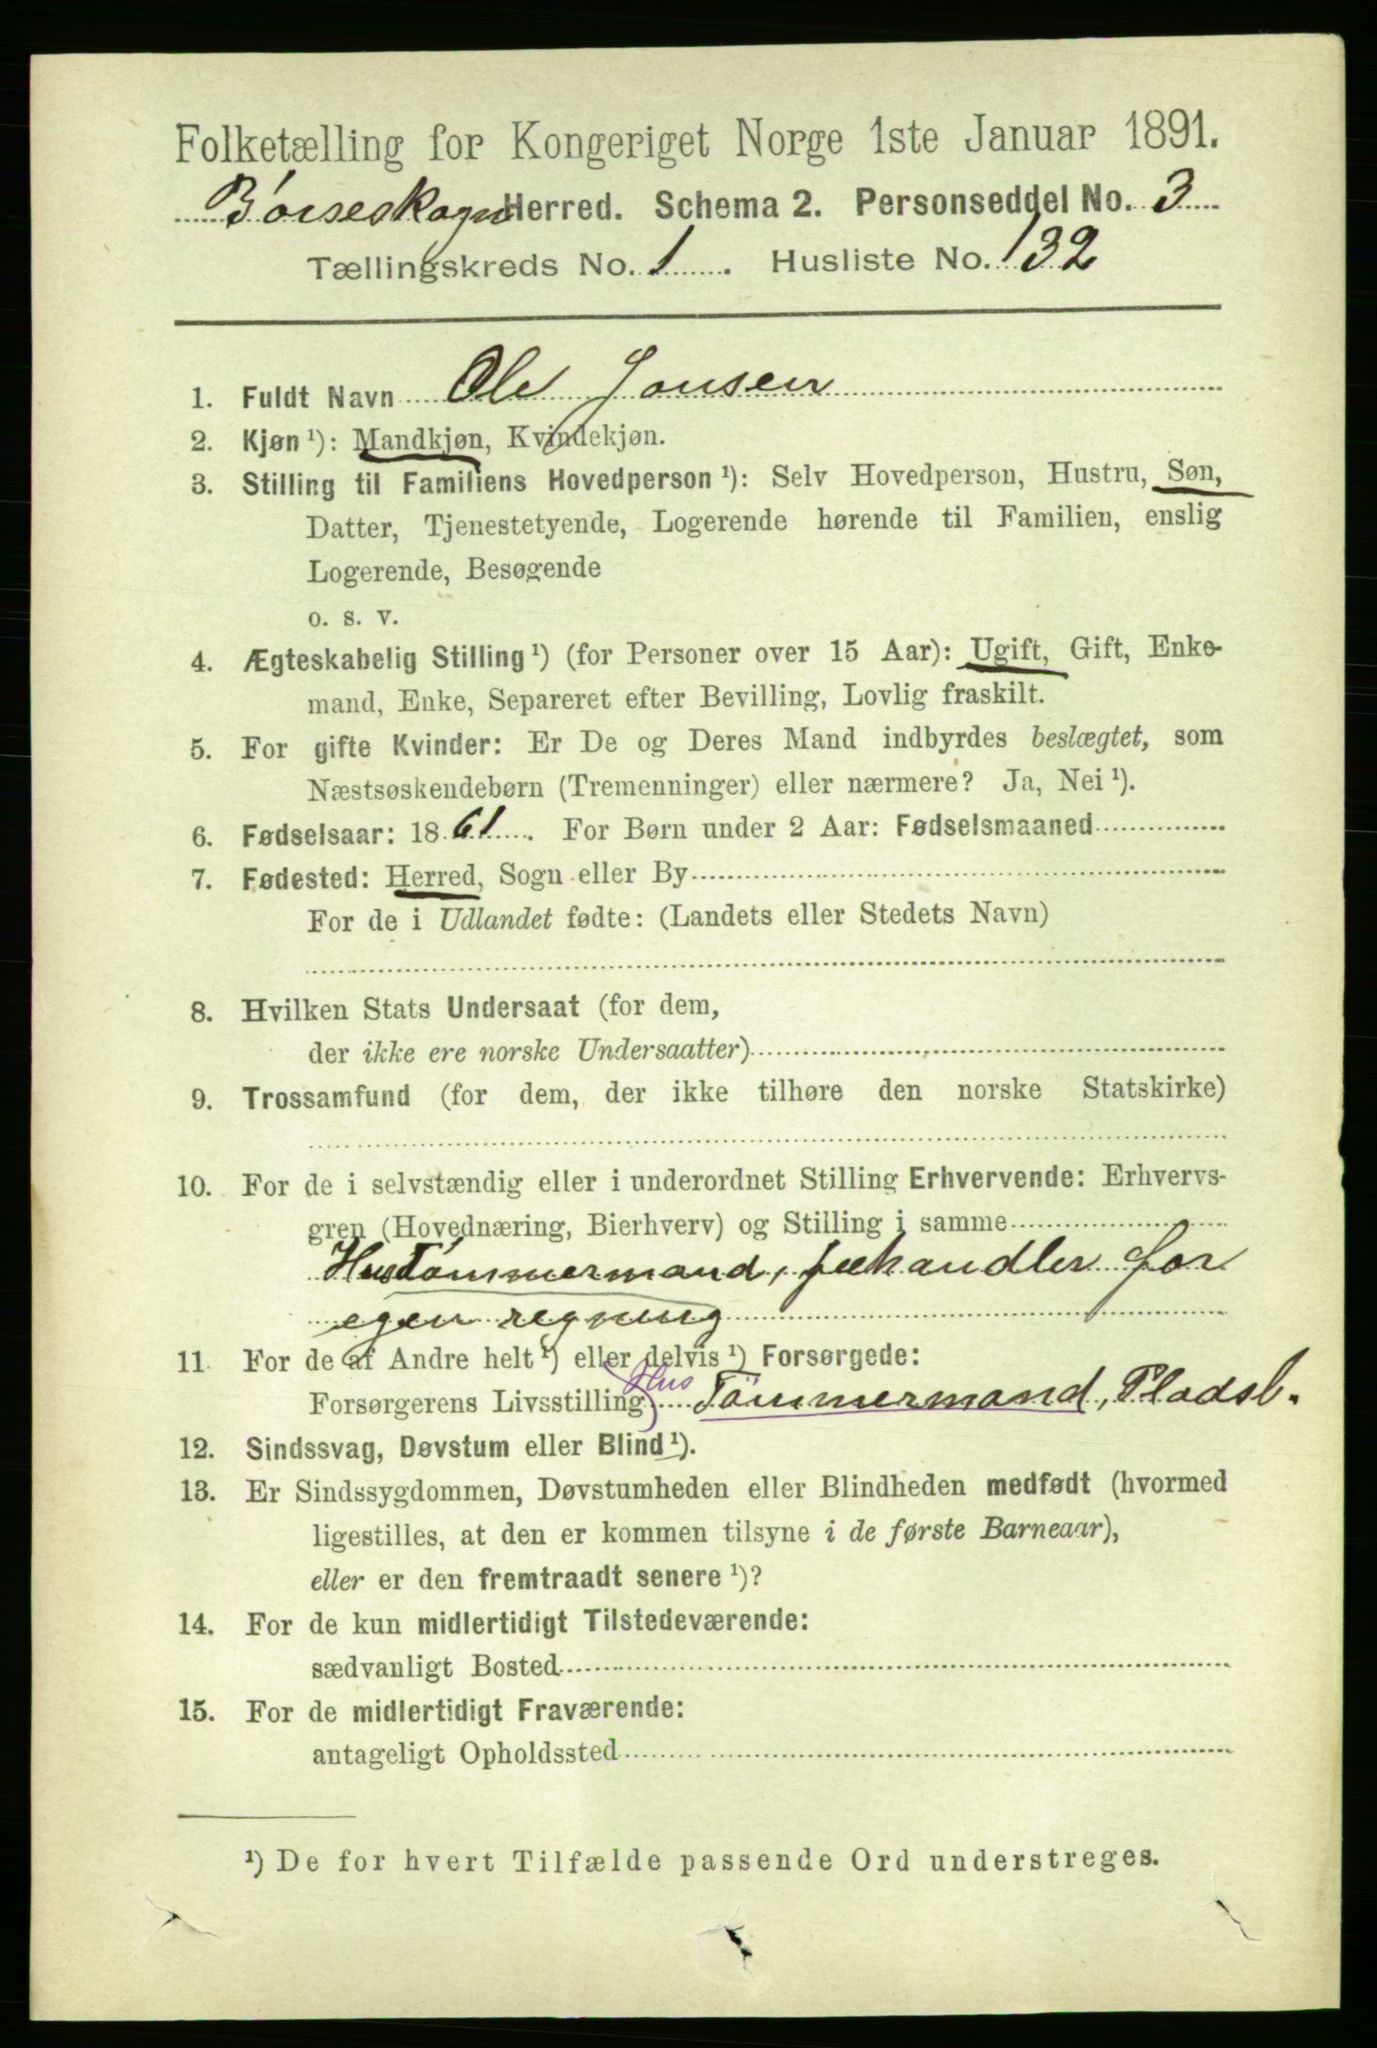 Folketælling for Kongeriget Norge 1ste Januar 1891.
Børseskogn Herred. Schema 2. Personseddel No. 3
Tællingskreds No. 1. Husliste No. 132
1. Fuldt Navn Ole Jonsen
2. Kjøn ¹): Mandkjøn, Kvindekjøn.
3. Stilling til Familiens Hovedperson ¹): Selv Hovedperson, Hustru, Søn,
Datter, Tjenestetyende, Logerende hørende til Familien, enslig
Logerende, Besøgende
o. s. v.
4. Ægteskabelig Stilling ¹) (for Personer over 15 Aar): Ugift, Gift, Enke-
mand, Enke, Separeret efter Bevilling, Lovlig fraskilt.
5. For gifte Kvinder: Er De og Deres Mand indbyrdes beslægtet, som
Næstsøskendebørn (Tremenninger) eller nærmere? Ja, Nei ¹).
6. Fødselsaar: 1861. For Børn under 2 Aar: Fødselsmaaned
7. Fødested: Herred, Sogn eller By
For de i Udlandet fødte: (Landets eller Stedets Navn)
8. Hvilken Stats Undersaat (for dem,
der ikke ere norske Undersaatter)
9. Trossamfund (for dem, der ikke tilhøre den norske Statskirke)
10. For de i selvstændig eller i underordnet Stilling Erhvervende: Erhvervs-
gren (Hovednæring, Bierhverv) og Stilling i samme
Hustømmermand, fehandler for
egen regning
11 For de af Andre helt ¹) eller delvis ¹) Forsørgede:
Forsørgerens Livsstilling Hus Tømmermand, Pladsb.
12. Sindssvag, Døvstum eller Blind ¹).
13. Er Sindssygdommen, Døvstumheden eller Blindheden medfødt (hvormed
ligestilles, at den er kommen tilsyne i de første Barneaar),
eller er den fremtraadt senere ¹)?
14. For de kun midlertidigt Tilstedeværende:
sædvanligt Bosted
15. For de midlertidigt Fraværende:
antageligt Opholdssted
¹) De for hvert Tilfælde passende Ord understreges.